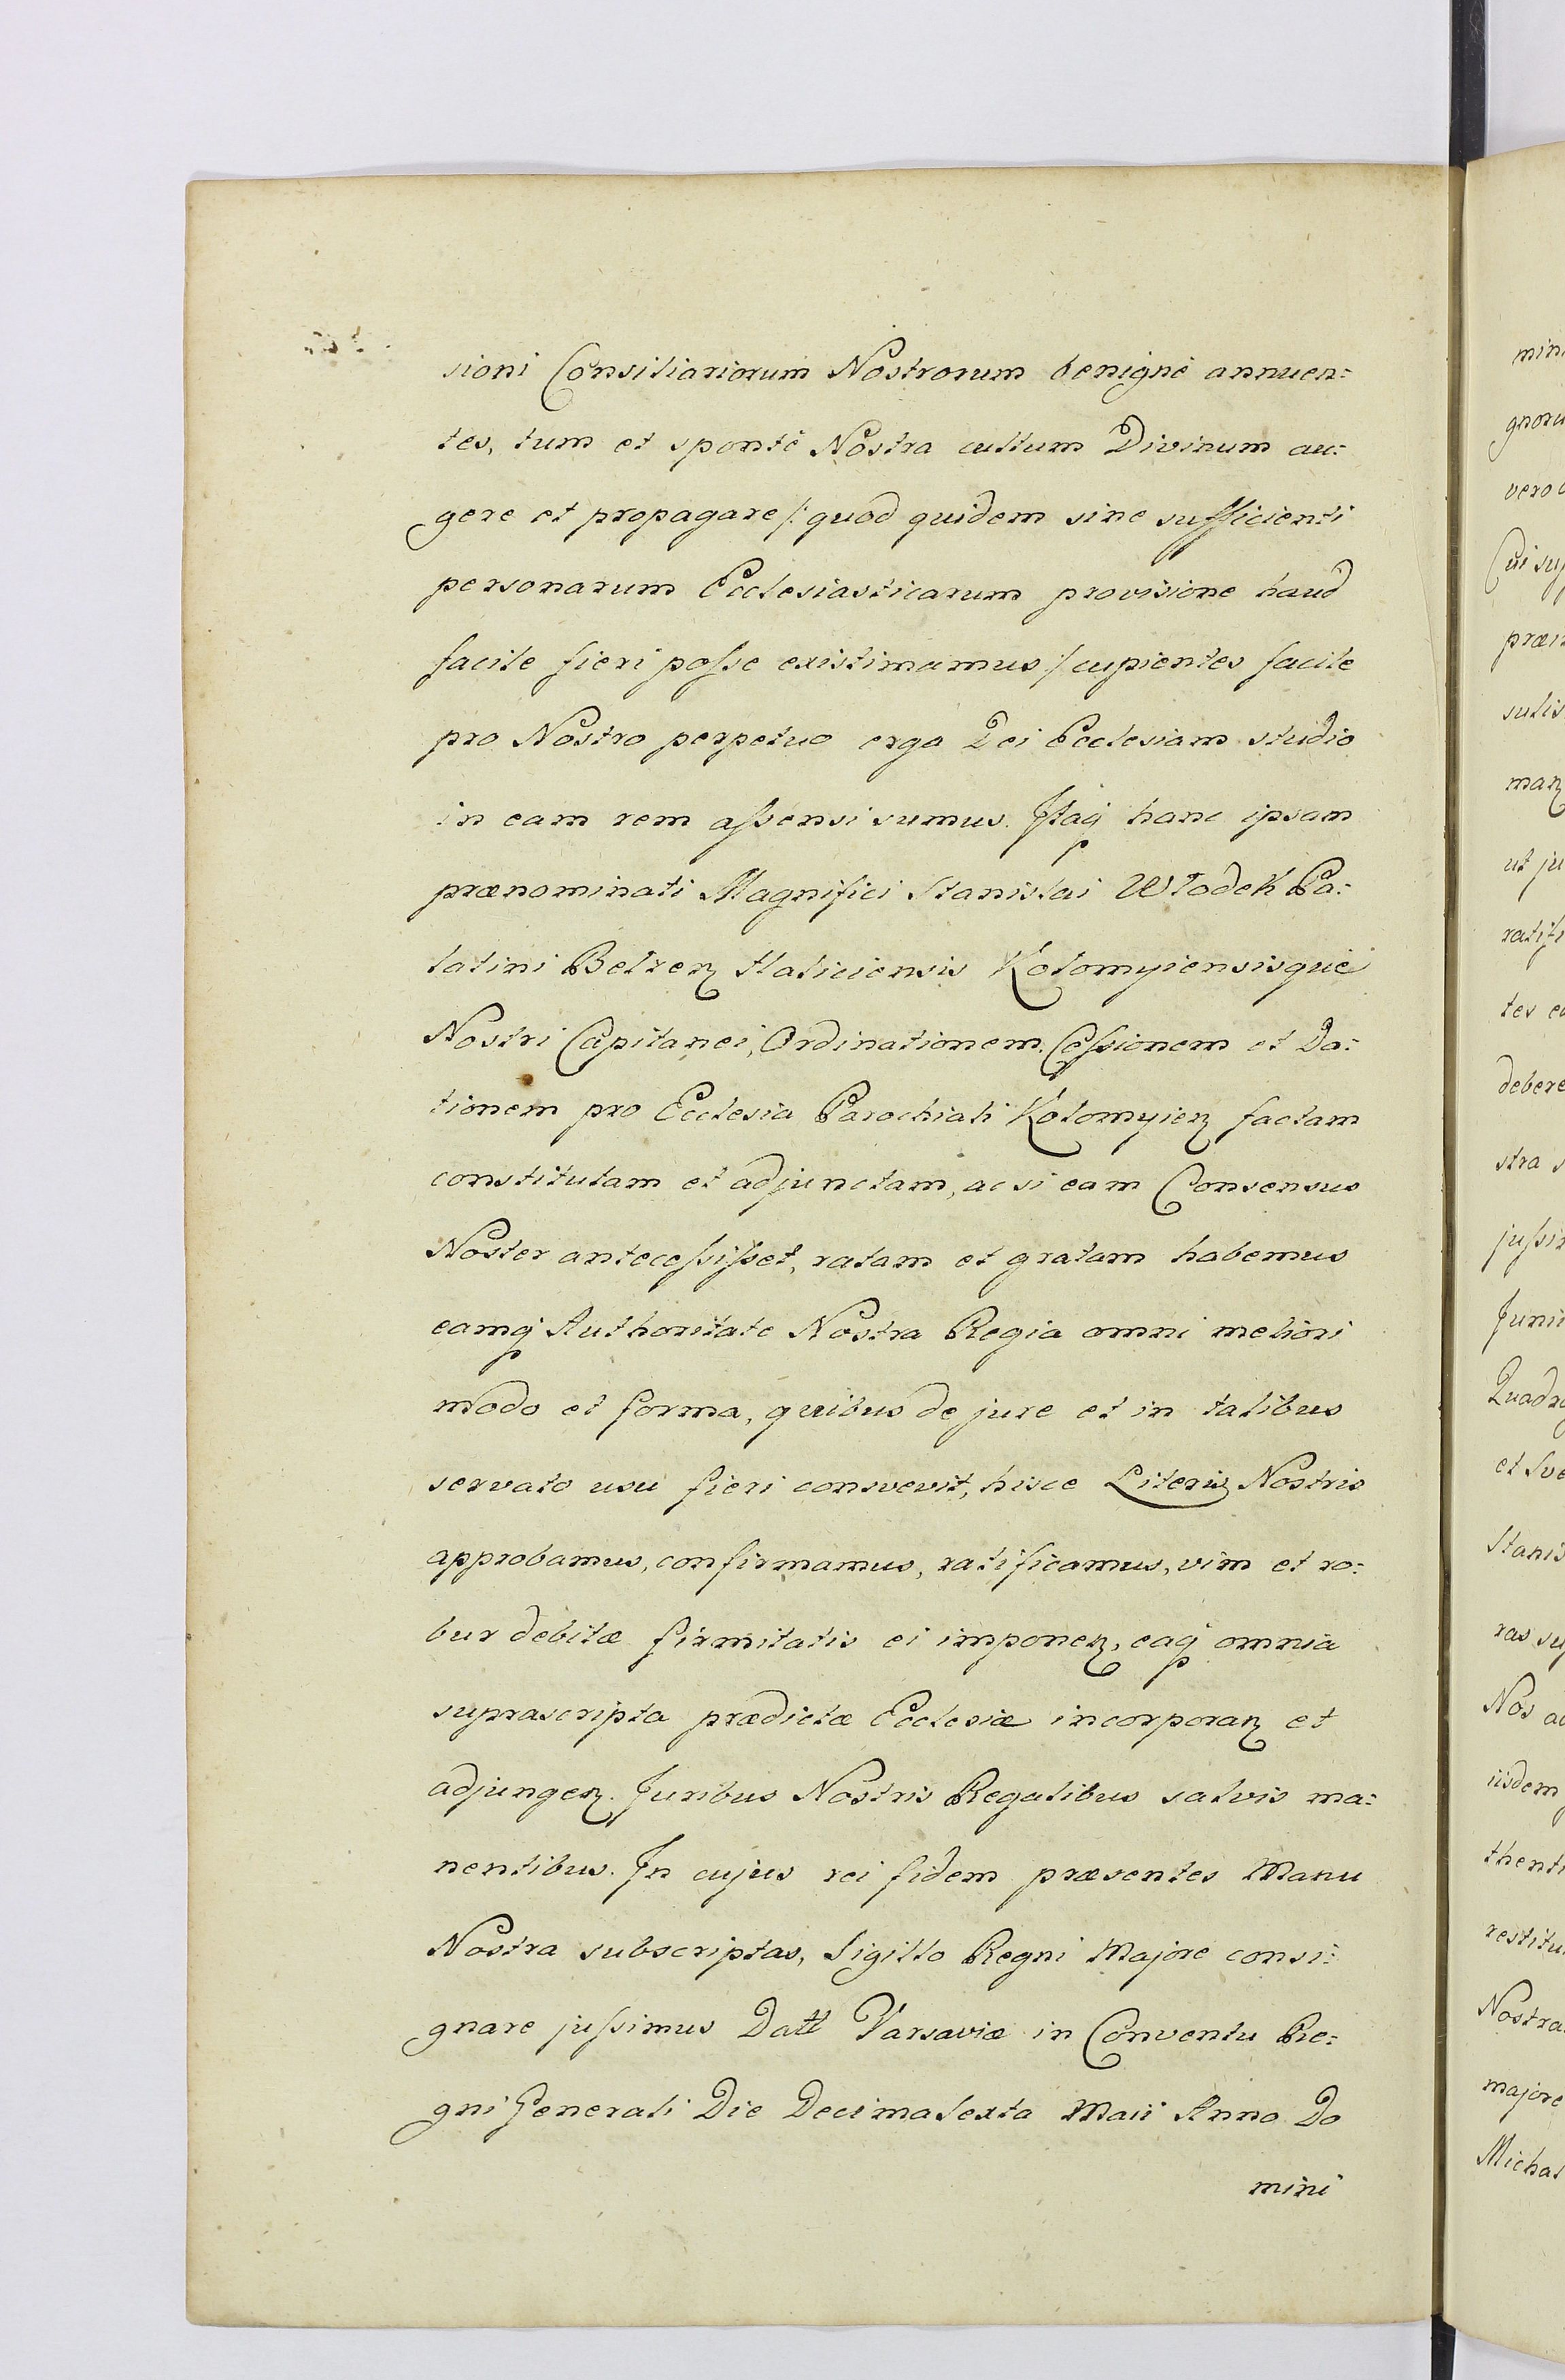 sioni Consiliariorum Nostrorum benignè annuen:
tes, tum et spontè Nostra cultum Divinum au:
gere et propagare /: quod quidem sine sufficienti
personarum Ecclesiasticarum provisione haud
facile fieri poſse existimamus :/ cupientes facile
pro Nostro perpetuo erga Dei Ecclesiam studio
in eam rem aſsensi sumus. Itaq hanc ipsam
prænominati Magnifici Stanislai Włodek Pa:
latini Belzen Haliciensis Kołomyiensisquè
Nostri Capitanei, Ordinationem, Ceſsionem et Da:
tionem pro Ecclesia Parochiali Kołomyien factam
constitutam et adjunctam, ac si eam Consensus
Noster anteceſsiſset, ratam et gratam habemus
eamq Authoritate Nostra Regia omni meliori
modo et forma, quibus de jure et in talibus
servato usu fieri consvevit, hisce Literis Nostris
approbamus, confirmamus, ratificamus, vim et ro:
bur debitæ firmitatis ei imponen, eaq omnia
suprascripta prædictæ Ecclesiæ incorporan et
adjungen. Juribus Nostris Regalibus salvis ma:
nentibus. In cujus rei fidem præsentes Manu
Nostra subscriptas, Sigillo Regni Majore consi:
gnare juſsimus Datt Varsaviæ in Conventu Re:
gni Generali Die Decima Sexta Maii Anno Do
mini